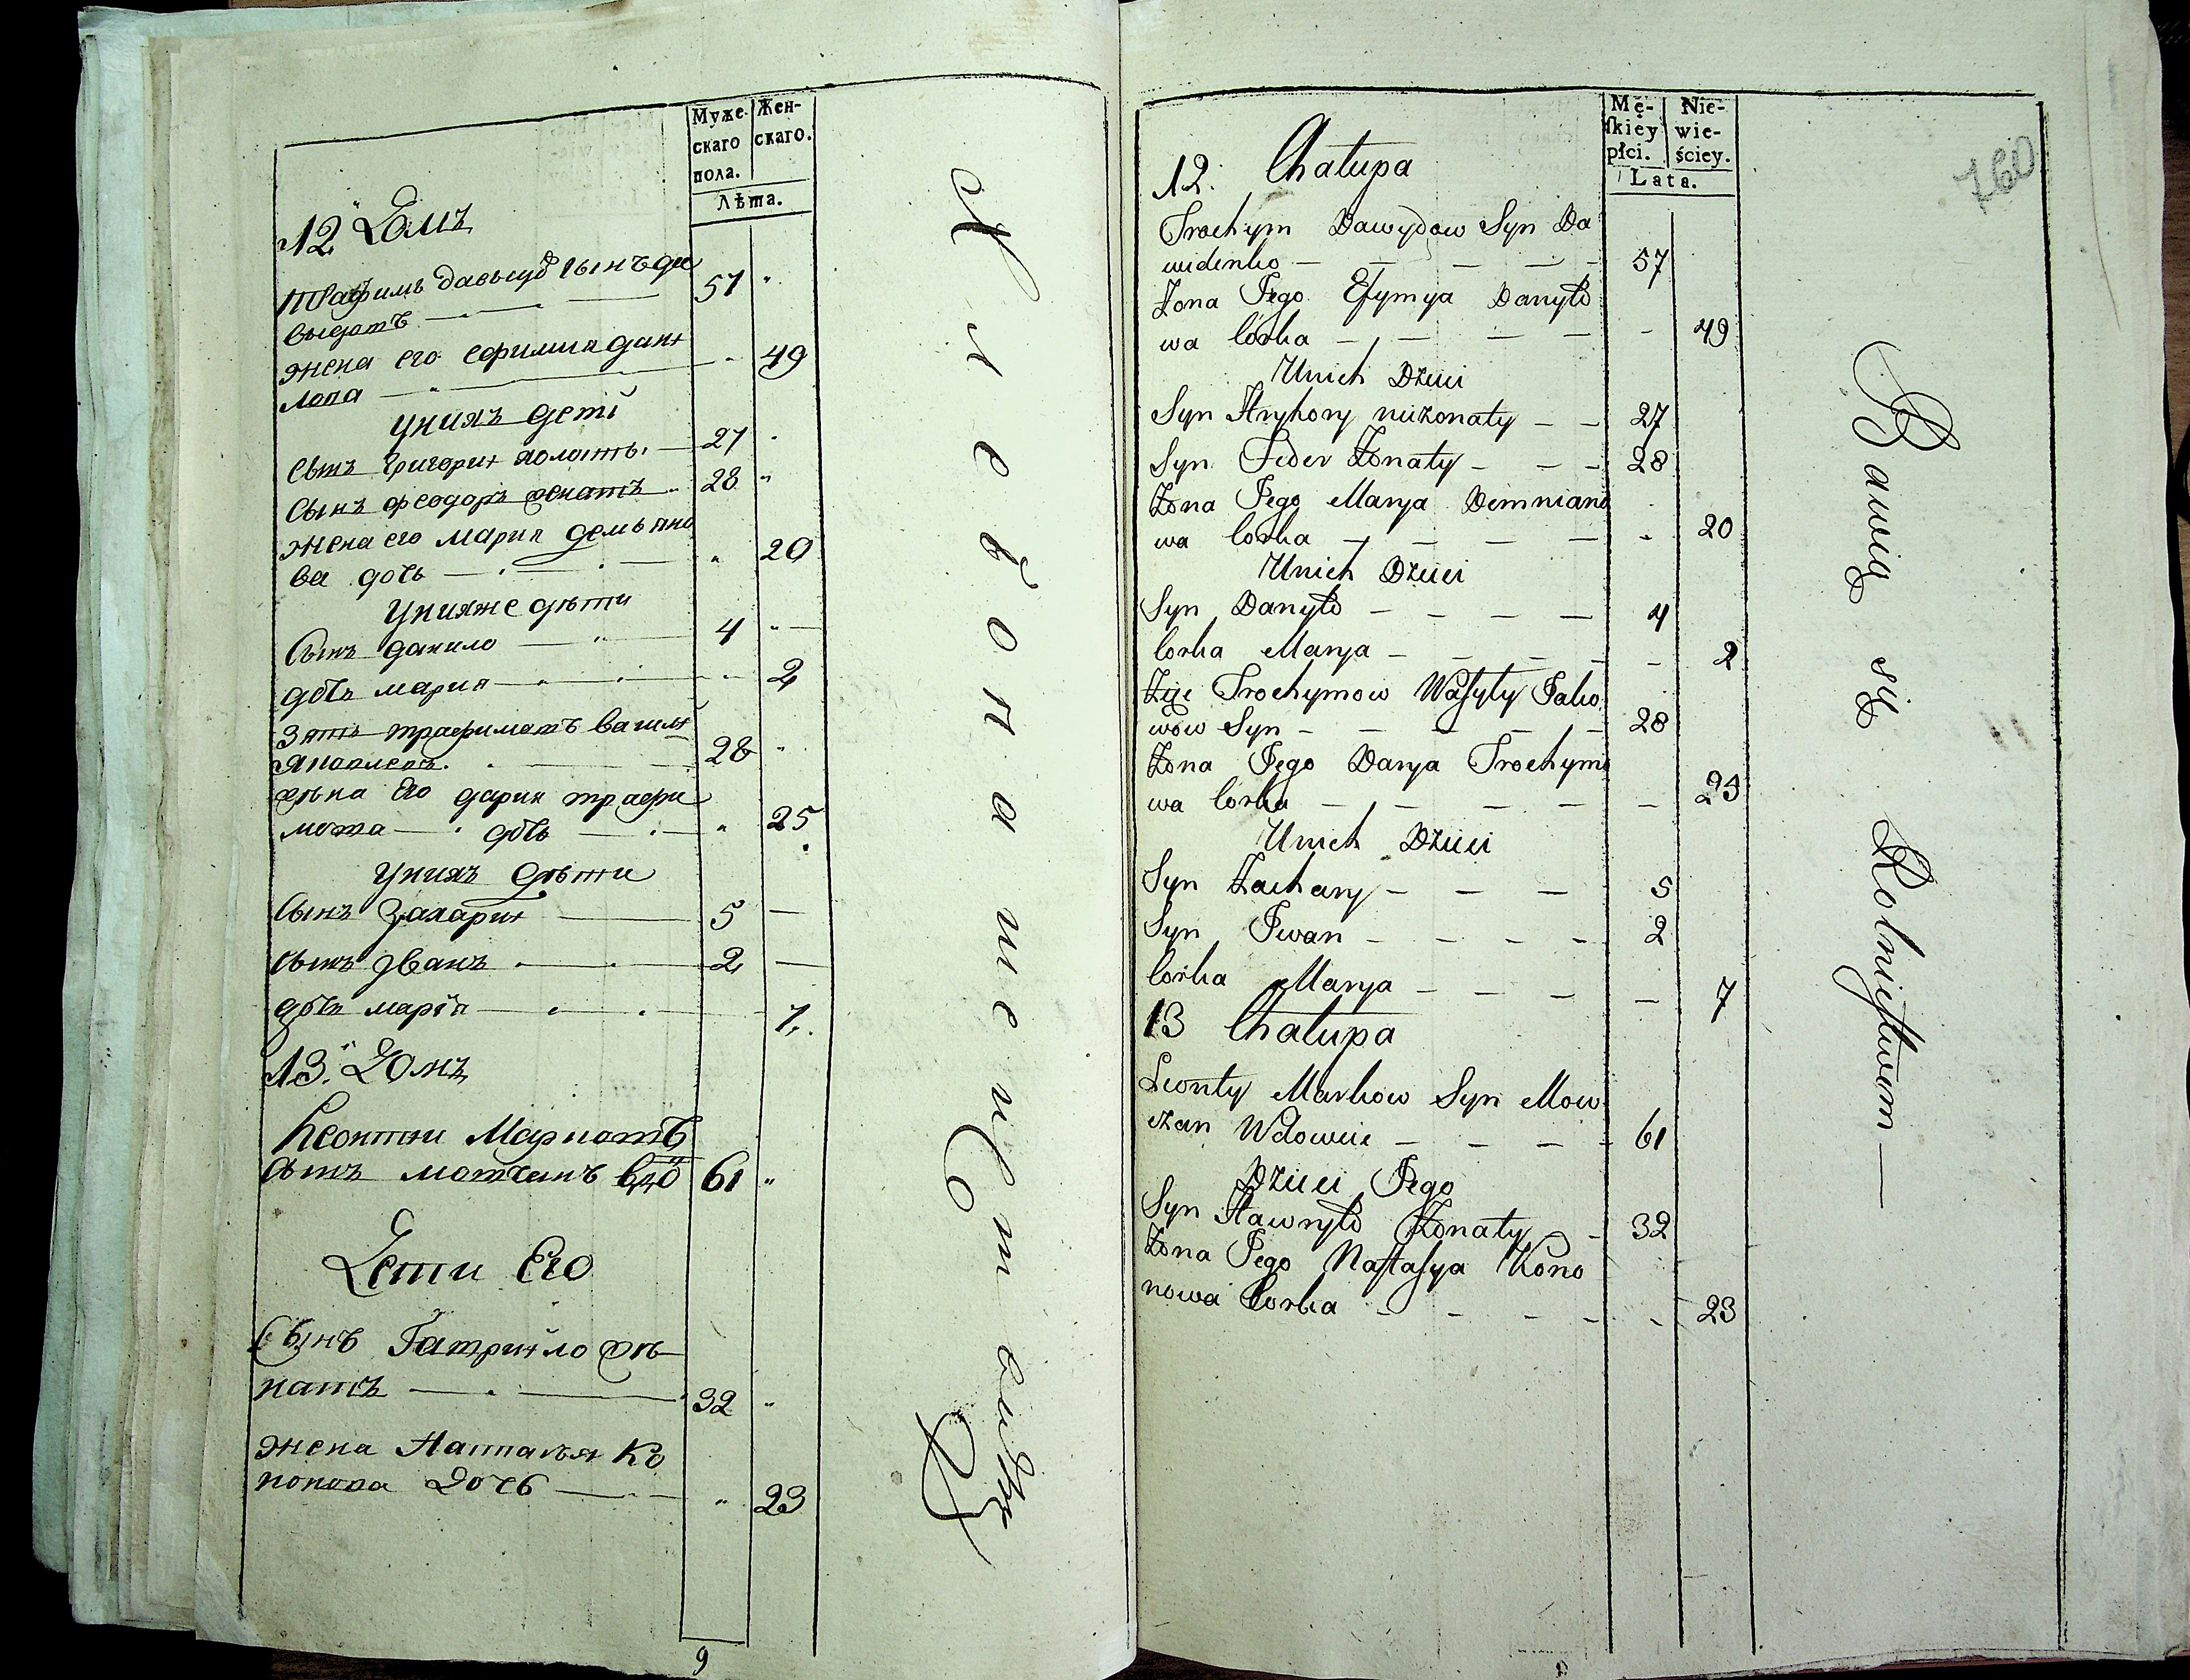 Муже-
скаго
пола.
Жен-
скаго.
Лѣта.
12 Домъ
Трафимъ давыдъ сынъ да
выдовъ 57
жена его ефимия дани
лова 49
Уних дети
Сынъ григори холасты 27
Сынъ феодоръ женатъ 28
жена его мария демьяно
ва дочь 20
Унихже дѣти
Сынъ данило 4
дочь мария 2
Зять трафимовъ васили
яковлевъ 28
жена Его дария трафи
мова дочь 25
Унихъ дѣти
Сынъ Захарии 5
сынъ Иванъ 2
дочь марія 7
13. Домъ
Леонтии Марковъ
сынъ мовчанъ вдо 61
Дети Его
Сынъ Гаврийло же
натъ 32
жена Настасья Ко
нонова дочь 23
9
Хлебопашеством
Mę-
ſkiey
płci.
Nie-
wie-
ściey.
Lata.
760
12. Chałupa
Trochym Dawydow Syn Da
widenko 57
Żona Jego Efymya Danyło
wa Corka 49
Unich Dzieci
Syn Hryhory nieżonaty 27
Syn Feder Żonaty 28
Żona Jego Marya Demniano
wa Corka 20
Unich Dzieci
Syn Danyło 4
Corka Marya 2
Zięć Trochymow Waſyly Jako
wow Syn 28
Żona Jego Darya Trochymo
wa Corka 25
Unich Dzieci
Syn Zachary 5
Syn Iwan 2
Corka Marya 7
13 Chałupa
Leonty Markow Syn Mow
czan Wdowiec 61
Dzieci Jego
Syn Hawryło Żonaty 32
Żona Jego Naſtaſya Kono
nowa Corka 23
Bawią się Rolnictwem